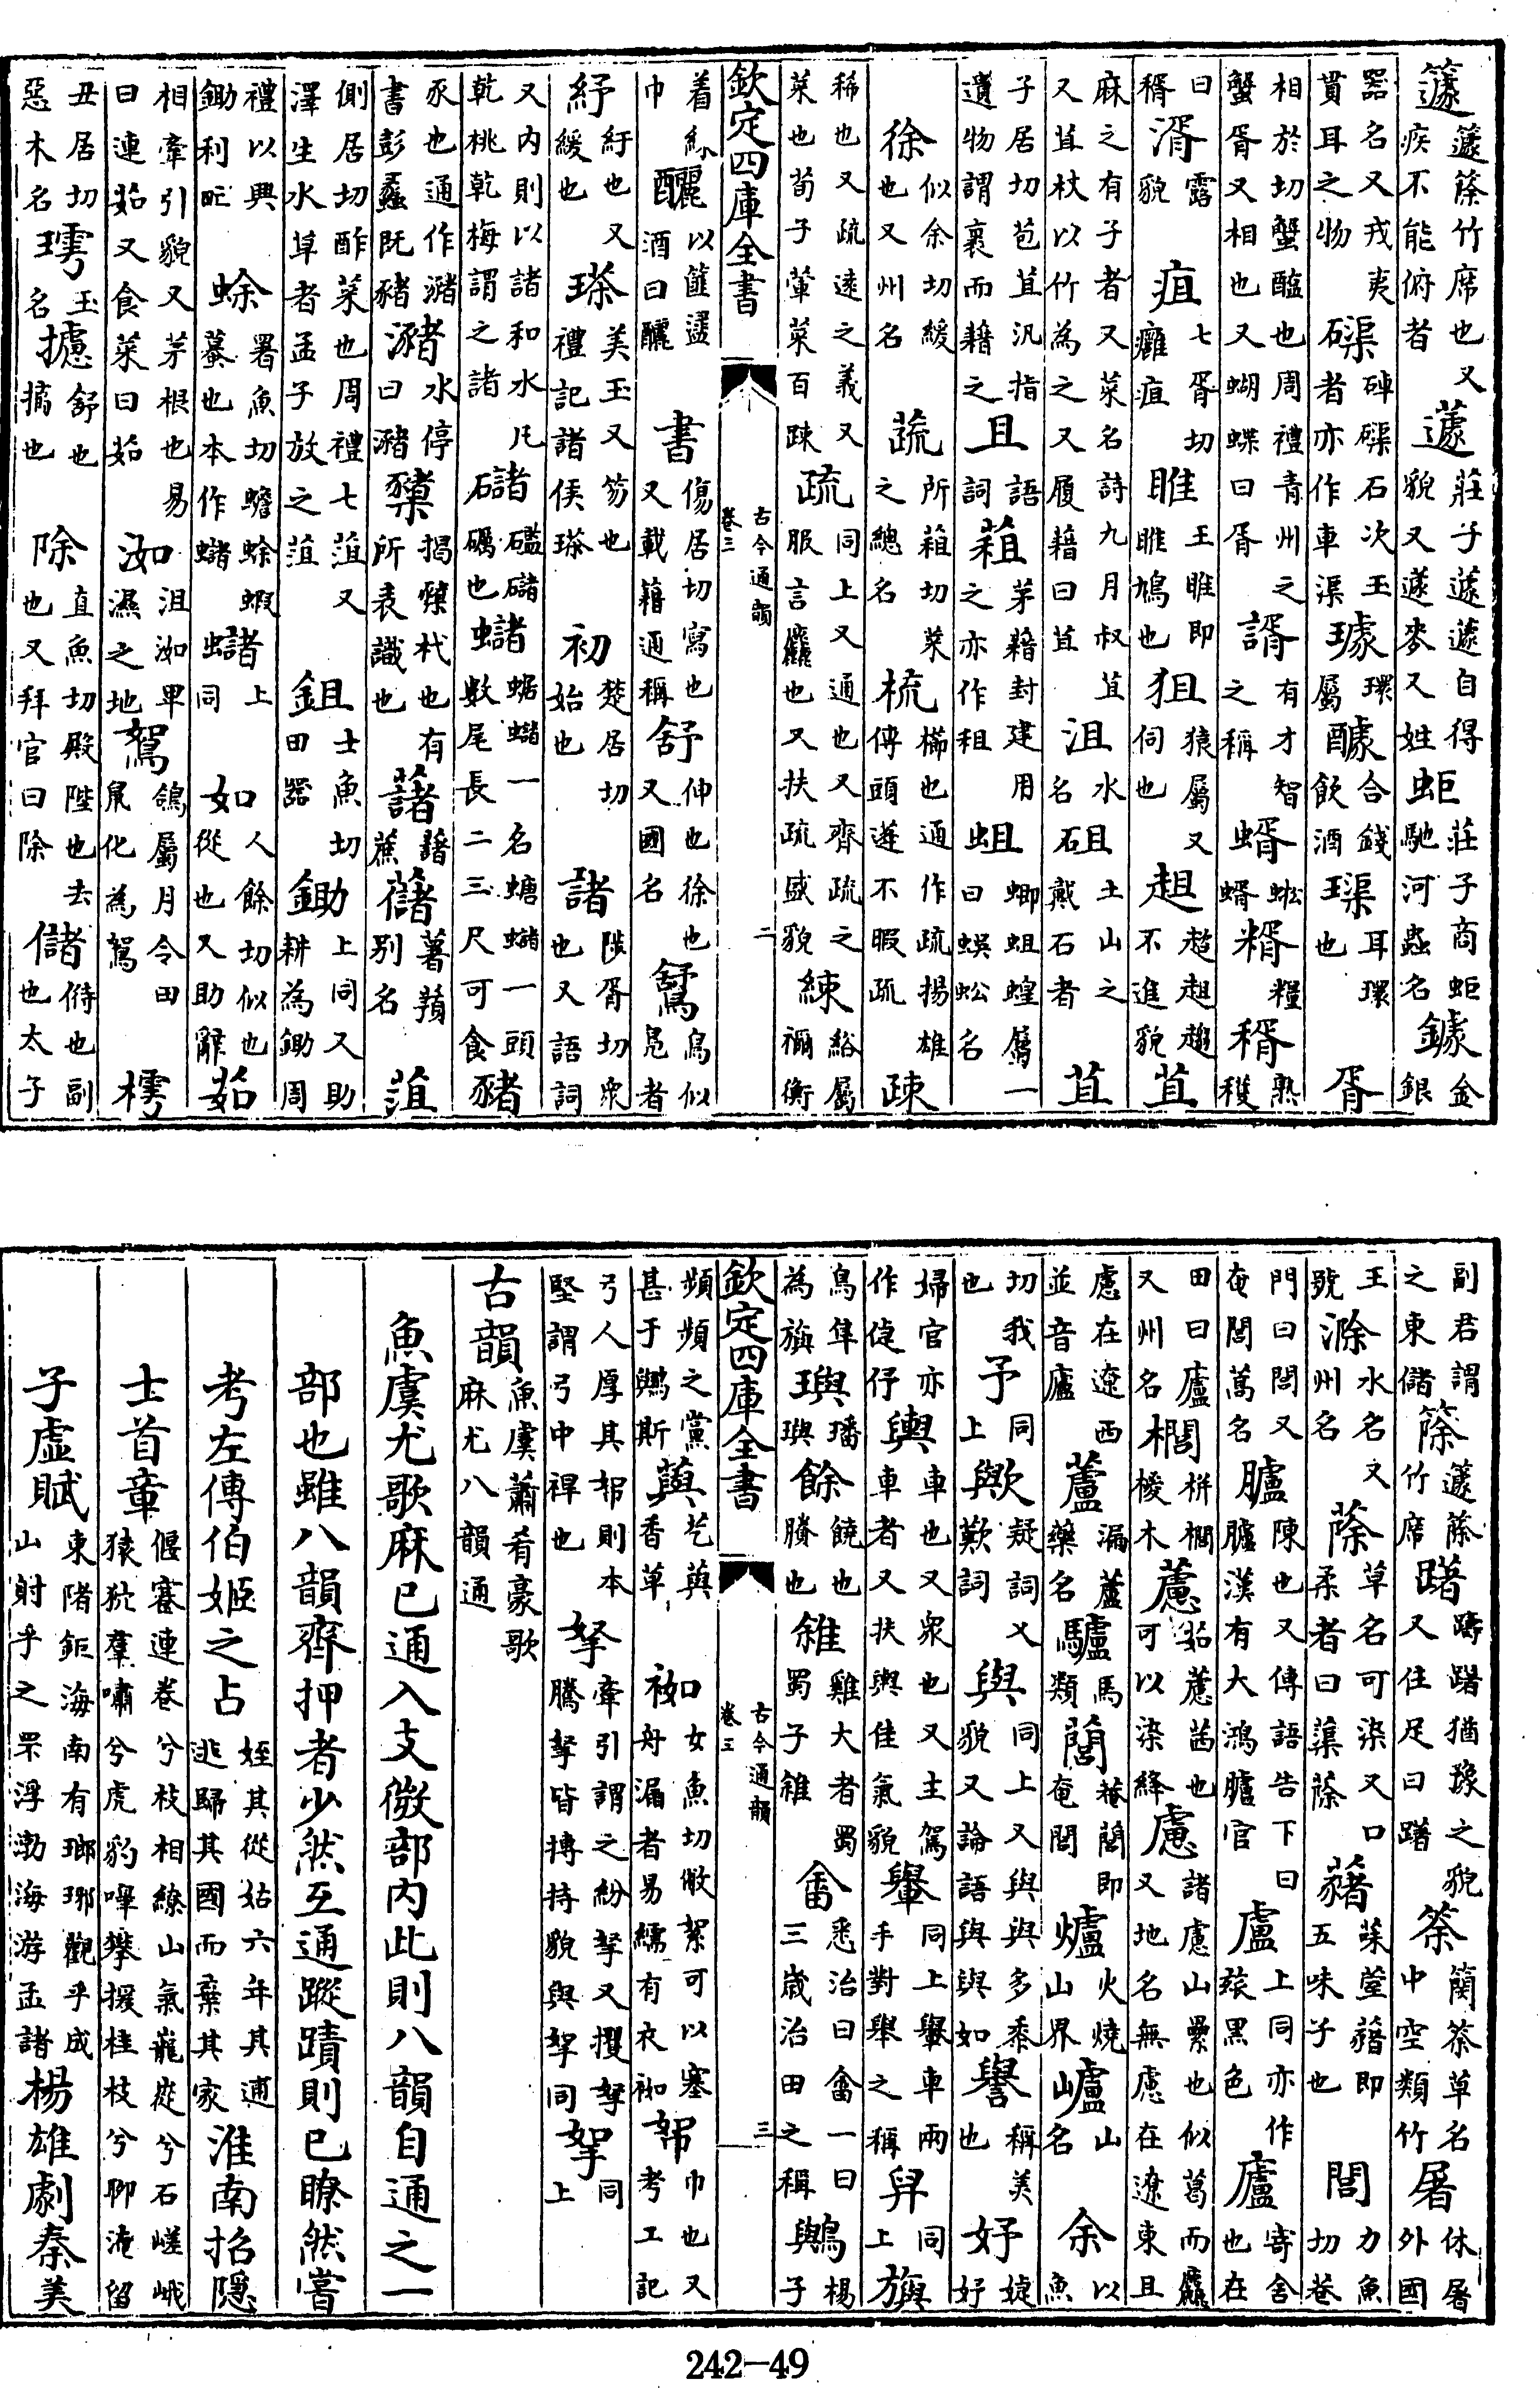 籧籧篨竹席也又疾不能俯者蘧莊子蘧蘧自得貌又蘧麥又姓蚷莊子商蚷馳河蟲名鐻金銀
器名又戎夷貫耳之物磲硨磲石次玉者亦作車渠璩環屬醵合錢飲酒璖耳環也胥
相於切蟹醢也周禮青州之蟹胥又相也又蝴蝶曰胥諝有才智之稱蝑蚣蝑糈糧稰熟穫
曰稰湑露貌疽七胥切癰疽雎王雎即雎鳩也狙猿屬又伺也趄趑趄趨不進貌苴
麻之有子者又菜名詩九月叔苴又苴杖以竹為之又履藉曰苴沮水名砠土山之戴石者苴
子居切苞苴汎指遺物謂裹而藉之且語詞蒩茅藉封建用之亦作租蛆蝍蛆蝗屬一曰蜈蚣名
徐似余切緩也又州名蔬所葅切菜之總名梳櫛也通作疏揚雄傳頭蓬不暇疏疎
稀也又疏遠之義又菜也荀子葷菜百疎疏同上又通也又齊疏之服言麤也又扶疏盛貌練綌屬禰衡
欽定四庫全書　古今通韻　卷三　二
着練巾釃以筐盪酒曰釃書傷居切寫也又載籍通稱舒伸也徐也又國名鵨鳥似鳧者
紓紆也又緩也瑹美玉又笏也禮記諸侯瑹初楚居切始也諸陟胥切衆也又語詞
又内則以諸和水凡乾桃乾梅謂之諸礛礛䃴礪也蠩蜛蠩一名螗蠩一頭數尾長二三尺可食豬
豕也通作瀦書彭蠡既豬瀦水停曰瀦櫫揭櫫杙也有所表識也藷藷蔗蕏薯蕷别名菹
側居切酢菜也周禮七菹又澤生水草者孟子放之菹鉏士魚切田器鋤上同又助耕為鋤周
禮以興鋤利甿蜍署魚切蟾蜍蝦蟇也本作蠩蠩上同如人餘切似也從也又助辭茹
相牽引貌又茅根也易曰連茹又食菜曰茹洳沮洳卑濕之地鴽鴿屬月令田鼠化為鴽樗
丑居切惡木名㻬玉名攄舒也摛也除直魚切殿陛也去也又拜官曰除儲偫也副也太子
副君謂之東儲篨籧篨竹席躇躊躇猶豫之貌又住足曰躇筡䕞筡草名中空類竹屠休屠外國
王號滁水名又州名蒢草名可染又口柔者曰蘧蒢藸菋荎藸即五味子也閭力魚切巷
門曰閭又奄閭蒿名臚陳也又傳語告下曰臚漢有大鴻臚官盧上同亦作玈黑色廬寄舍也在
田曰廬又州名櫚栟櫚椶木藘茹藘茜也可以染絳慮諸慮山纍也似葛而麤又地名無慮在遼東且
慮在遼西並音廬蘆漏蘆藥名驢馬類䕡菴䕡即奄閭爐火燒山界嶇山名余以魚
切我也予同上歟疑詞又歎詞與同上又與與多黍貌又論語與與如譽稱美也妤婕妤
婦官亦作倢伃輿車也又衆也又主駕車者又扶輿佳氣貌轝同上轝車兩手對舉之稱舁同上旟
鳥隼為旟璵璠璵餘饒也賸也雓雞大者蜀蜀子雓畬悉治曰畬一曰三歲治田之稱鸒楊子
欽定四庫全書　古今通韻　卷三　三
頻頻之黨甚于鸒斯藇艺藇香草袽女魚切敝絮可以塞舟漏者易繻有衣袽帤巾也又考工記
弓人厚其帤則木堅謂弓中裨也挐牽引謂之紛挐又攫挐騰挐皆摶持貌與拏同拏同上
古韻魚虞蕭肴豪歌麻尤八韻通
魚虞尤歌麻已通入支微部内此則八韻自通之一
部也雖八韻齊押者少然互通蹤蹟則已瞭然嘗
考左傳伯姬之占姪其從姑六年其逋逃歸其國而棄其家淮南招隱
士首章偃蹇連卷兮枝相繚山氣巃嵸兮石嵯峨猿狖羣嘯兮虎豹嗥攀援桂枝兮聊淹留
子虛賦東陼鉅海南有琅琊觀乎成山射乎之罘浮渤海游孟諸楊雄劇秦美
242-49